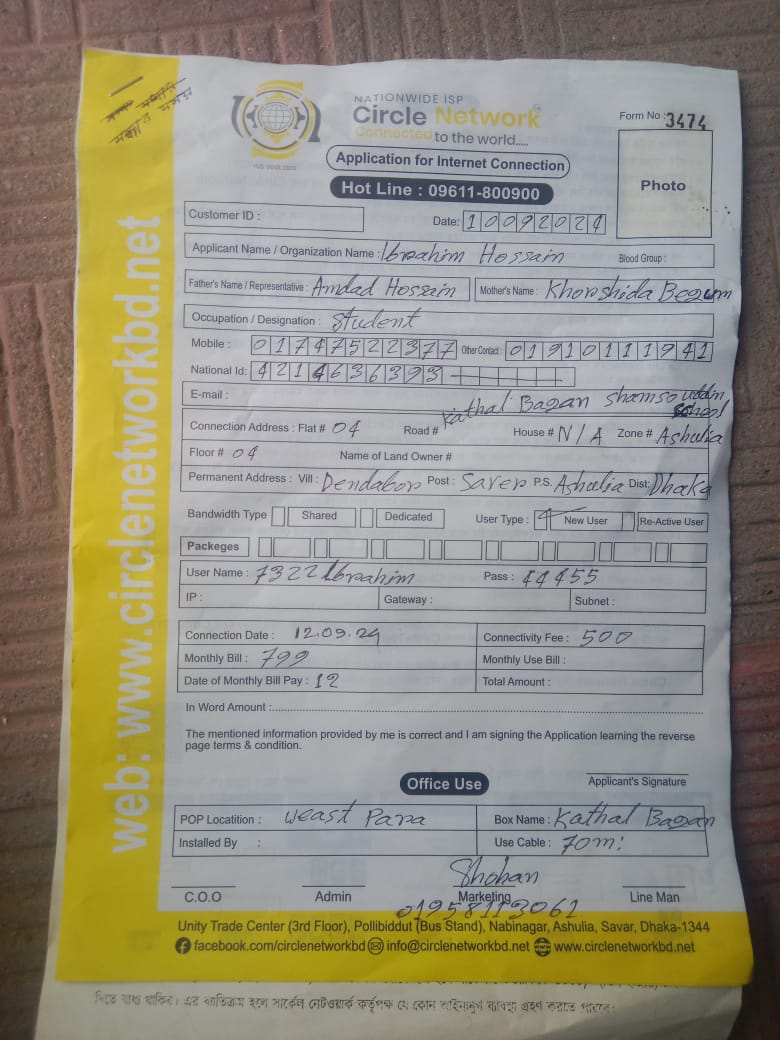 NATIONWIDE ISP
Circle Network
Connected to the world.....
ISO 9001:2015
Form No : 3474
Application for Internet Connection
Hot Line : 09611-800900
Photo
Customer ID :
Date: 10092024
Applicant Name / Organization Name : Ibrahim Hossain Blood Group :
Father's Name / Representative : Amdad Hossain Mother's Name : Khorshida Begum
Occupation / Designation : Student
Mobile : 01747522377 Other Contact : 01910111941
National Id: 4214636393
E-mail :
Kathal Bagan Shamsouddin School
Connection Address : Flat # 04 Road # House # N/A Zone # Ashulia
Floor # 04 Name of Land Owner #
Permanent Address : Vill : Dendabor Post : Saver P.S. Ashulia Dist: Dhaka
Bandwidth Type Shared Dedicated User Type : New User Re-Active User
Packeges
User Name : 7322Ibrahim Pass : 44455
IP : Gateway : Subnet :
Connection Date : 12.09.24 Connectivity Fee : 500
Monthly Bill : 799 Monthly Use Bill :
Date of Monthly Bill Pay : 12 Total Amount :
In Word Amount :
The mentioned information provided by me is correct and I am signing the Application learning the reverse
page terms & condition.
Applicant's Signature
Office Use
POP Locatition : Weast Para Box Name : Kathal Bagan
Installed By : Use Cable : 70m:
Shohan
C.O.O Admin Marketing Line Man
01958113061
Unity Trade Center (3rd Floor), Pollibiddut (Bus Stand), Nabinagar, Ashulia, Savar, Dhaka-1344
facebook.com/circlenetworkbd info@circlenetworkbd.net www.circlenetworkbd.net
web: www.circlenetworkbd.net
দিতে বাধ্য থাকিব। এর ব্যতিক্রম হলে সার্কেল নেটওয়ার্ক কর্তৃপক্ষ যে কোন আইনানুগ ব্যবস্থা গ্রহণ করতে পারবে।